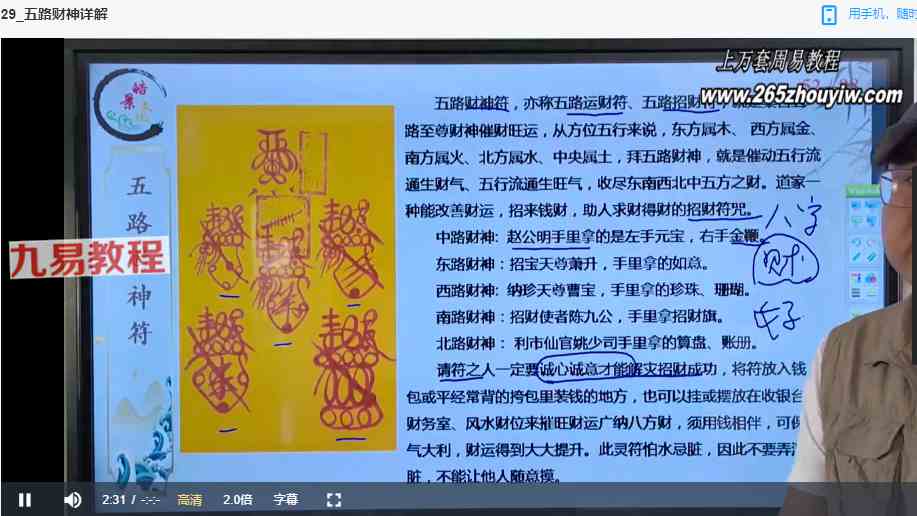 29_五路财神详解
用手机，随时
上万套周易教程
www.265zhouyiw.com
皓景
五路
神符
九易教程
五路财神符，亦称五路运财符、五路招财
路至尊财神催财旺运，从方位五行来说，东方属木、西方属金、
南方属火、北方属水、中央属土，拜五路财神，就是催动五行流
通生财气、五行流通生旺气，收尽东南西北中五方之财。道家一
种能改善财运，招来钱财，助人求财得财的招财符咒。
中路财神: 赵公明手里拿的是左手元宝，右手金鞭。
东路财神：招宝天尊萧升，手里拿的如意。
西路财神: 纳珍天尊曹宝，手里拿的珍珠、珊瑚。
南路财神：招财使者陈九公，手里拿招财旗。
北路财神： 利市仙官姚少司手里拿的算盘、账册。
请符之人一定要诚心诚意才能解灾招财成功，将符放入钱
包或平经常背的挎包里装钱的地方，也可以挂或摆放在收银台
财务室、风水财位来摧旺财运广纳八方财，须用钱相伴，可保
气大利，财运得到大大提升。此灵符怕水忌脏，因此不要弄
脏，不能让他人随意摸。
八字
财
2:31 / -:-:-
高清
2.0倍
字幕